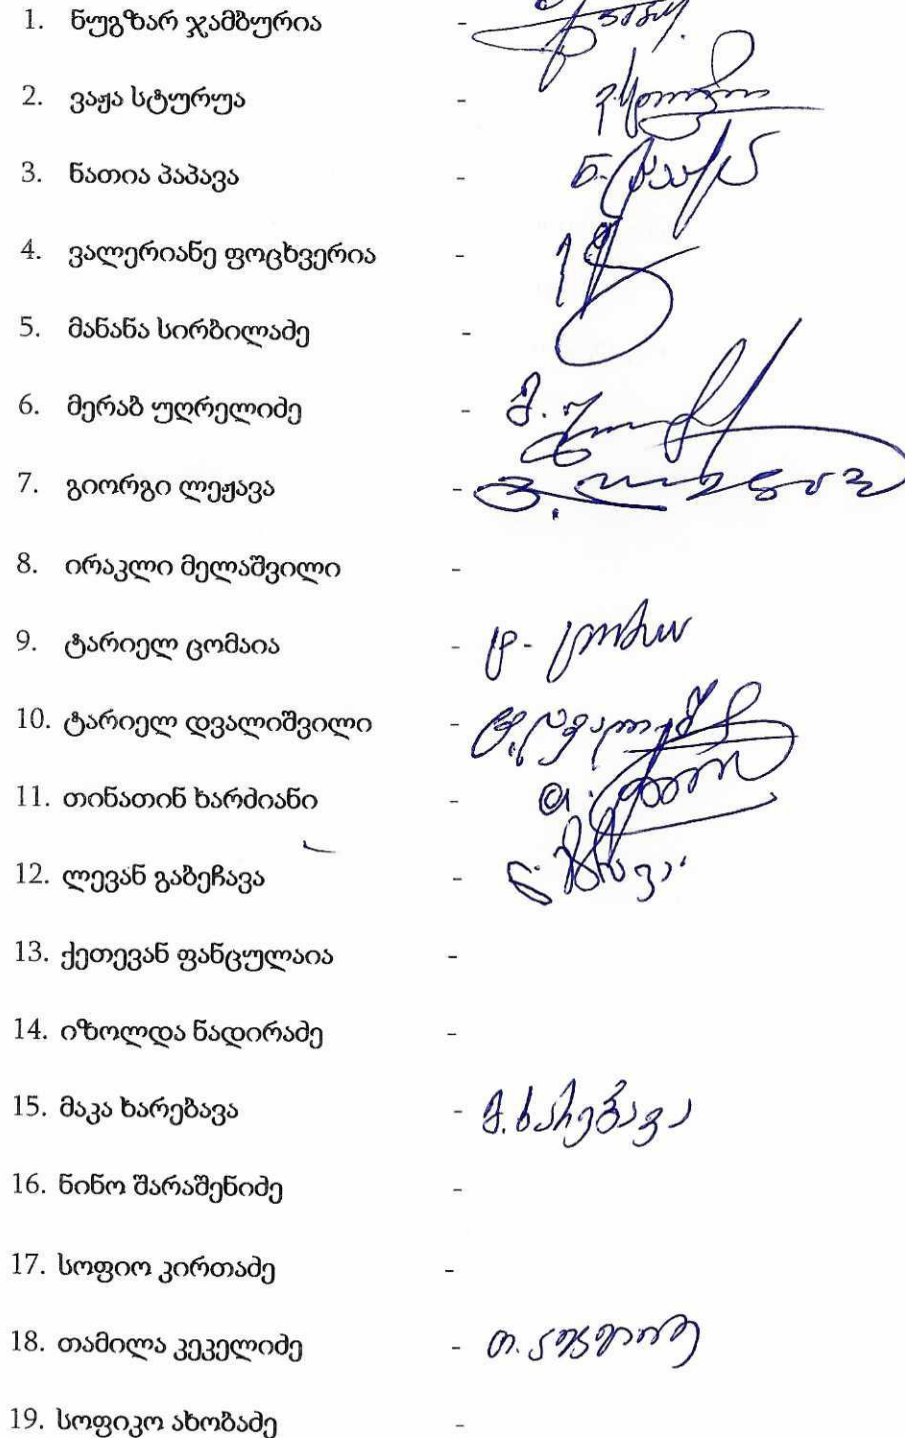 1. ნუგზარ ჯამბურია -
2. ვაჟა სტურუა -
3. ნათია პაპავა -
4. ვალერიანე ფოცხვერია -
5. მანანა სირბილაძე -
6. მერაბ უღრელიძე -
7. გიორგი ლეჟავა -
8. ირაკლი მელაშვილი -
9. ტარიელ ცომაია -
10. ტარიელ დვალიშვილი -
11. თინათინ ხარძიანი -
12. ლევან გაბეჩავა -
13. ქეთევან ფანცულაია -
14. იზოლდა ნადირაძე -
15. მაკა ხარებავა - მ. ხარებავა
16. ნინო შარაშენიძე -
17. სოფიო კირთაძე -
18. თამილა კეკელიძე -
19. სოფიკო ახობაძე -